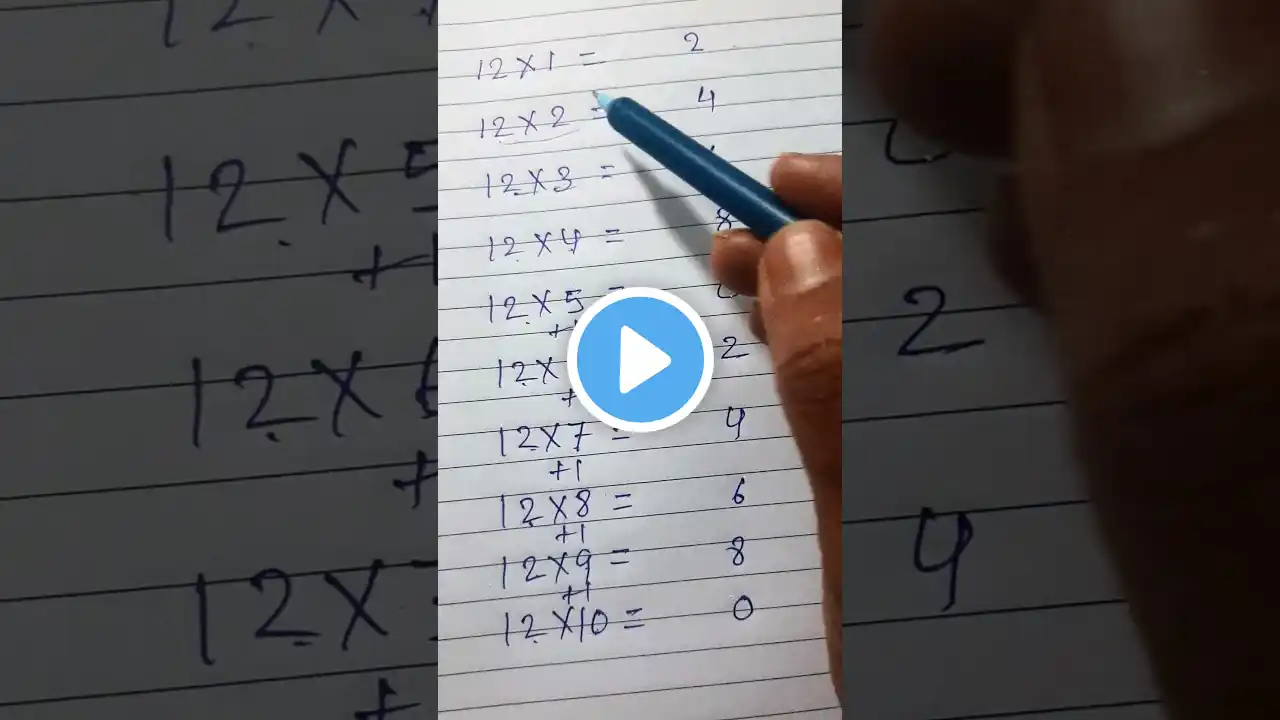 12 x 1 = 2
12 x 2 = 4
12 x 3 =
12 x 4 = 8
12 x 5 =
12 x 2
12 x 7 = 4
+1
12 x 8 = 6
+1
12 x 9 = 8
+1
12 x 10 = 0